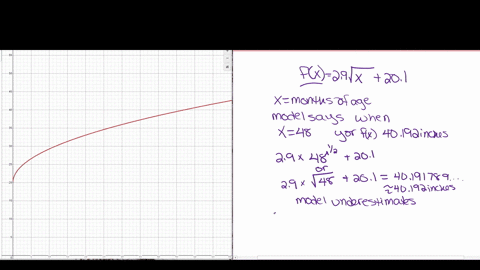 f(x)=2.9√x + 20.1
x=months of age
model says when
x=48 y or f(x) 40.192 inches
2.9 x 48^1/2 + 20.1
or
2.9 x √48 + 20.1 = 40.191789...
≈40.192 inches
model underestimates